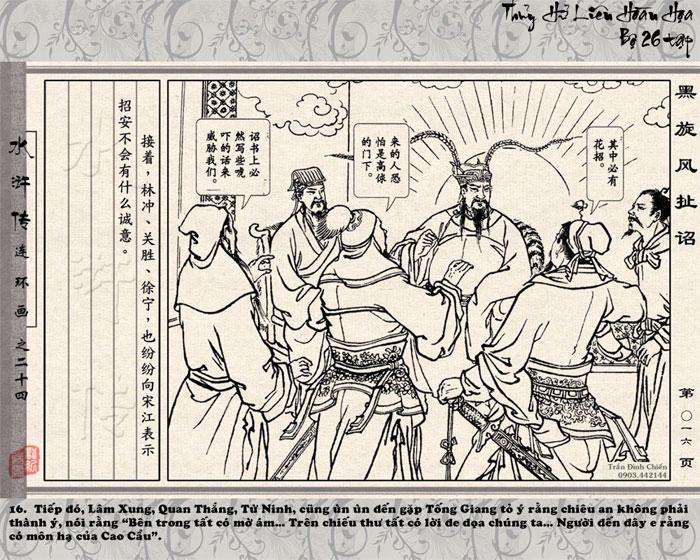 Thủy Hử Liên Hoàn Họa
Bộ 26 tập
黑旋风扯诏
第〇一六页
其中必有
花招。
来的人恐
怕是高俅
的门下。
诏书上必
然写些唬
吓的话来
威胁我们。
接着，林冲、关胜、徐宁，也纷纷向宋江表示
招安不会有什么诚意。
水浒传
水浒传连环画之二十四
Trần Đình Chiến
0903.442144
16. Tiếp đó, Lâm Xung, Quan Thắng, Từ Ninh, cũng ùn ùn đến gặp Tống Giang tỏ ý rằng chiêu an không phải
thành ý, nói rằng “Bên trong tất có mờ ám... Trên chiếu thư tất có lời đe dọa chúng ta... Người đến đây e rằng
có môn hạ của Cao Cầu”.